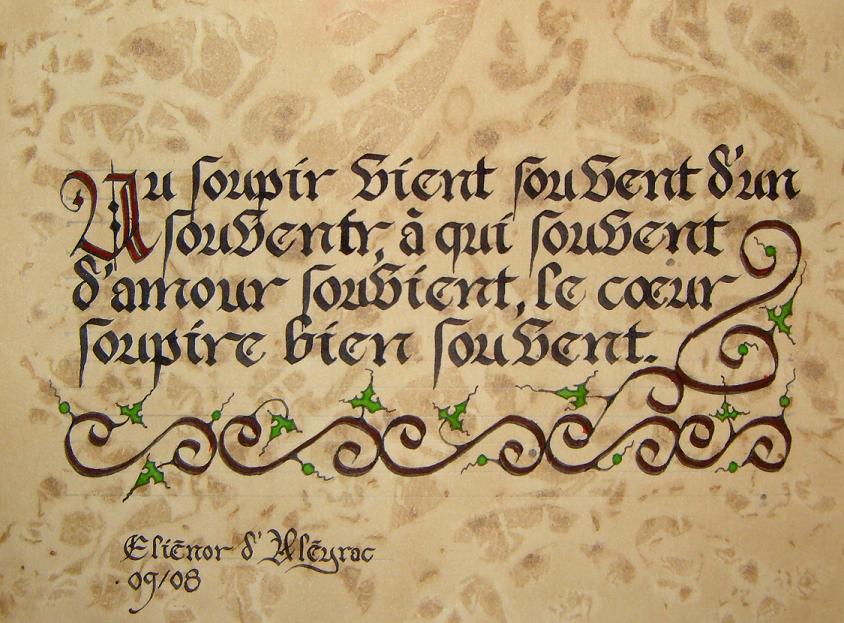 Un soupir vient souvent d'un
souvenir, à qui souvent
d'amour souvient, le cœur
soupire bien souvent.
Eliénor d'Aléyrac
09/08